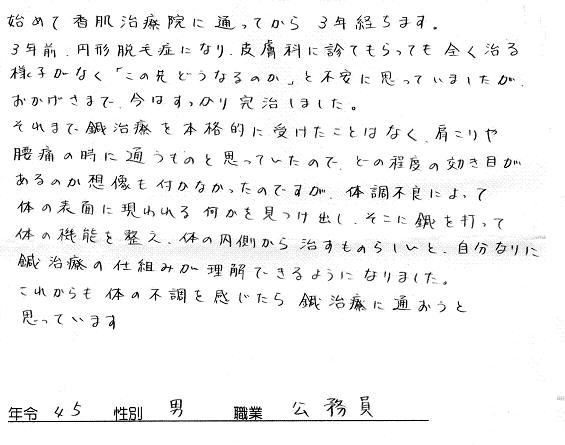 始めて香肌治療院に通ってから3年経ちます。
3年前、円形脱毛症になり、皮膚科に診てもらっても全く治る
様子がなく「この先どうなるのか」と不安に思っていましたが、
おかげさまで、今はすっかり完治しました。
それまで鍼治療を本格的に受けたことはなく、肩こりや
腰痛の時に通うものと思っていたので、どの程度の効き目が
あるのか想像も付かなかったのですが、体調不良によって
体の表面に現われる何かを見つけ出し、そこに鍼を打って
体の機能を整え、体の内側から治すものらしいと、自分なりに
鍼治療の仕組みが理解できるようになりました。
これからも体の不調を感じたら鍼治療に通おうと
思っています
年令 45 性別 男 職業 公務員